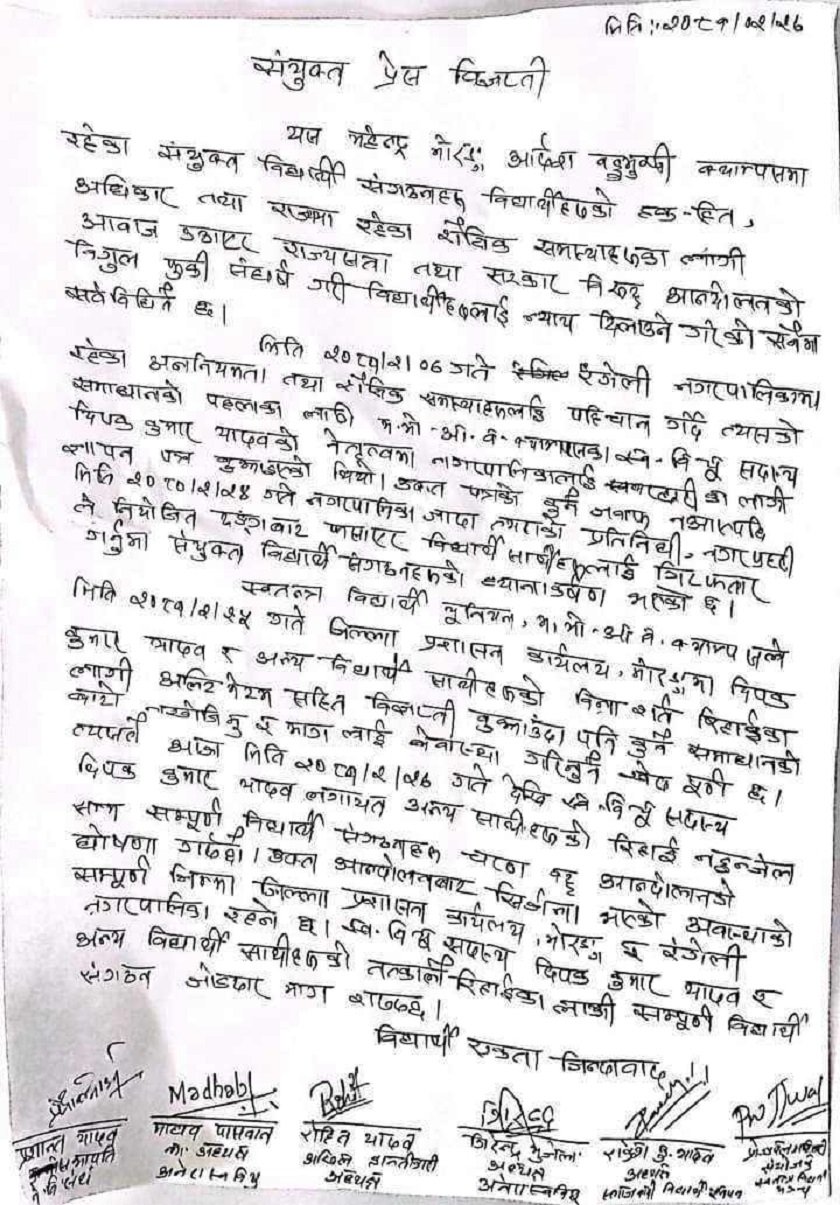 मिति:- २०८१/०२/२६
संयुक्त प्रेस विज्ञप्ती
यस महेन्द्र मोरङ्ग आदर्श बहुमुखी क्याम्पसमा
रहेका संयुक्त विद्यार्थी संगठनहरु विद्यार्थीहरुको हक-हित,
अधिकार तथा राज्यमा रहेका शैक्षिक समस्याहरुका लागी
आवाज उठाएर राज्यसत्ता तथा सरकार विरुद्ध आन्दोलनको
विगुल फुकी संघर्ष गरी विद्यार्थीहरुलाई न्याय दिलाउने गरेको सर्वत्र
सर्वविदितै छ।
मिति २०८१/२/०६ गते रंगेली नगरपालिकामा
रहेका अननियमता तथा शैक्षिक समस्याहरुलाई पहिचान गर्दै त्यसको
समाधानको पहलका लागी म.मो.आ.ब. क्याम्पसका स्व.वि.यू सदस्य
दिपक कुमार यादवको नेतृत्वमा नगरपालिकालाई का लागी
ज्ञापन पत्र बुझाएको थियो। उक्त पत्रको कुनै जवाफ नआएपछि
मिति २०८१/२/२४ गते नगरपालिका जादा नगरको प्रतिनिधी, नगरप्रहरी
ले नियोजित ढङ्गबाट फसाएर विद्यार्थी साथीहरुलाई गिरफ्तार
गर्नुमा संयुक्त विद्यार्थी संगठनहरुको ध्यानाकर्षण भएको छ।
स्वतन्त्र विद्यार्थी यूनियन, म.मो.आ.ब. क्याम्पसले
मिति २०८१/२/२५ गते जिल्ला प्रशासन कार्यलय, मोरङ्गमा दिपक
कुमार यादव र अन्य विद्यार्थी साथीहरुको विना शर्त रिहाईका
लागी अल्टिमेटम सहित विज्ञप्ती बुझाउँदा पनि कुनै समाधानको
बाटो नखोजिनु र माग लाई वेवास्था गरिनु खेद पूर्ण छ।
त्यसर्ते आज मिति २०८१/२/२६ गते देखि स्व.वि.यू सदस्य
दिपक कुमार यादव लगायत अन्य साथीहरुको रिहाई नहुन्जेल
सम्म सम्पूर्ण विद्यार्थी संगठनहरु चरण बद्द आन्दोलनको
घोषणा गर्दछौ। उक्त आन्दोलनबाट सिर्जना भएको अवस्थाको
सम्पूर्ण जिम्मा जिल्ला प्रशासन कार्यलय, मोरङ्ग र रंगेली
नगरपालिका रहने छ। स्व.वि.यू सदस्य दिपक कुमार यादव र
अन्य विद्यार्थी साथीहरुको तत्काल रिहाईका लागी सम्पूर्ण विद्यार्थी
संगठन जोडदार माग राख्दछ।
विद्यार्थी एकता जिन्दावाद!!
Madhab
प्रशान्त यादव
माधव पासवान
रोहित यादव
अध्यक्ष
अखिल क्रान्तीकारी
अध्यक्ष
अध्यक्ष
अध्यक्ष
संयोजक